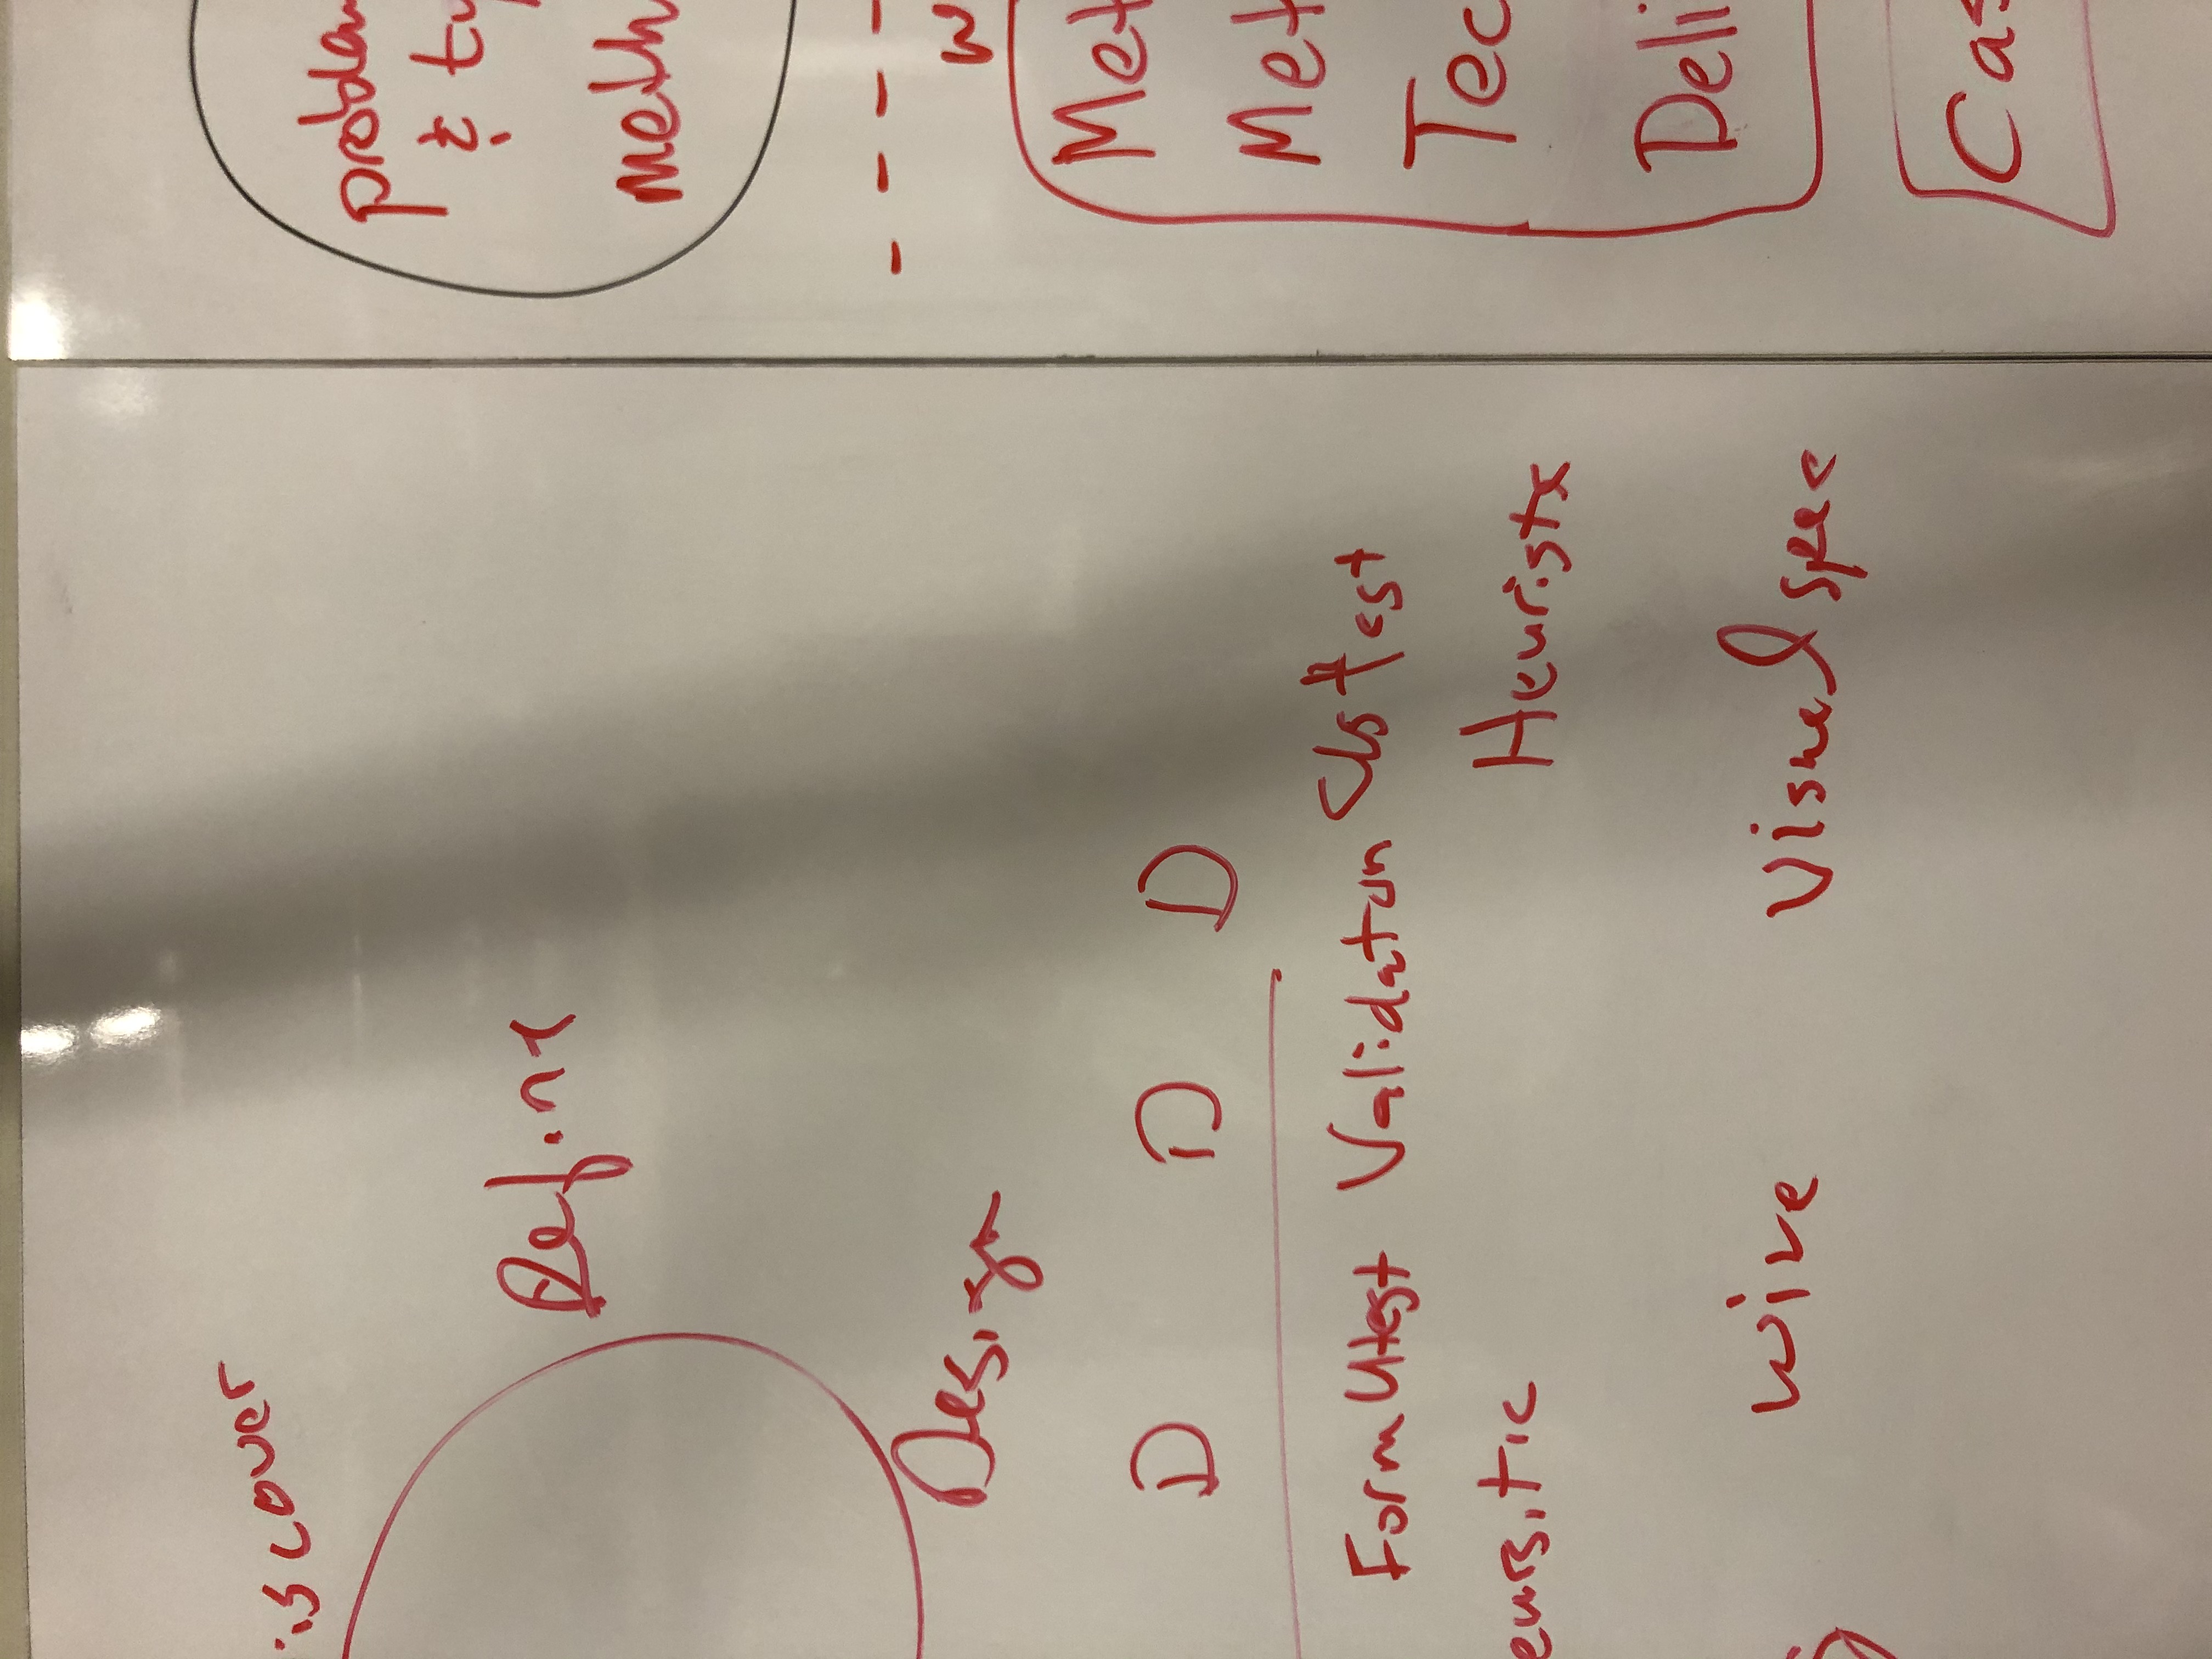 iscover
Refine
Design
D D D
Form Utest Validaton Cls test
eursitic Heuristx
wire Visual spec
problem
& ty
meth
w
Met
Met
Tec
Deli
Cas